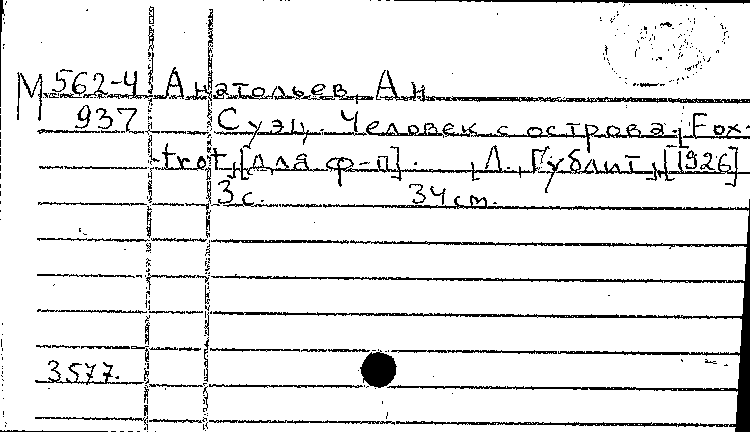 М 562-4 Анатольев, Ан.
937 Суэц. Человек с острова. Fox-
trot, [для ф-п]. Л., Гублит, [1926]
3 с. 34 см.
3577.